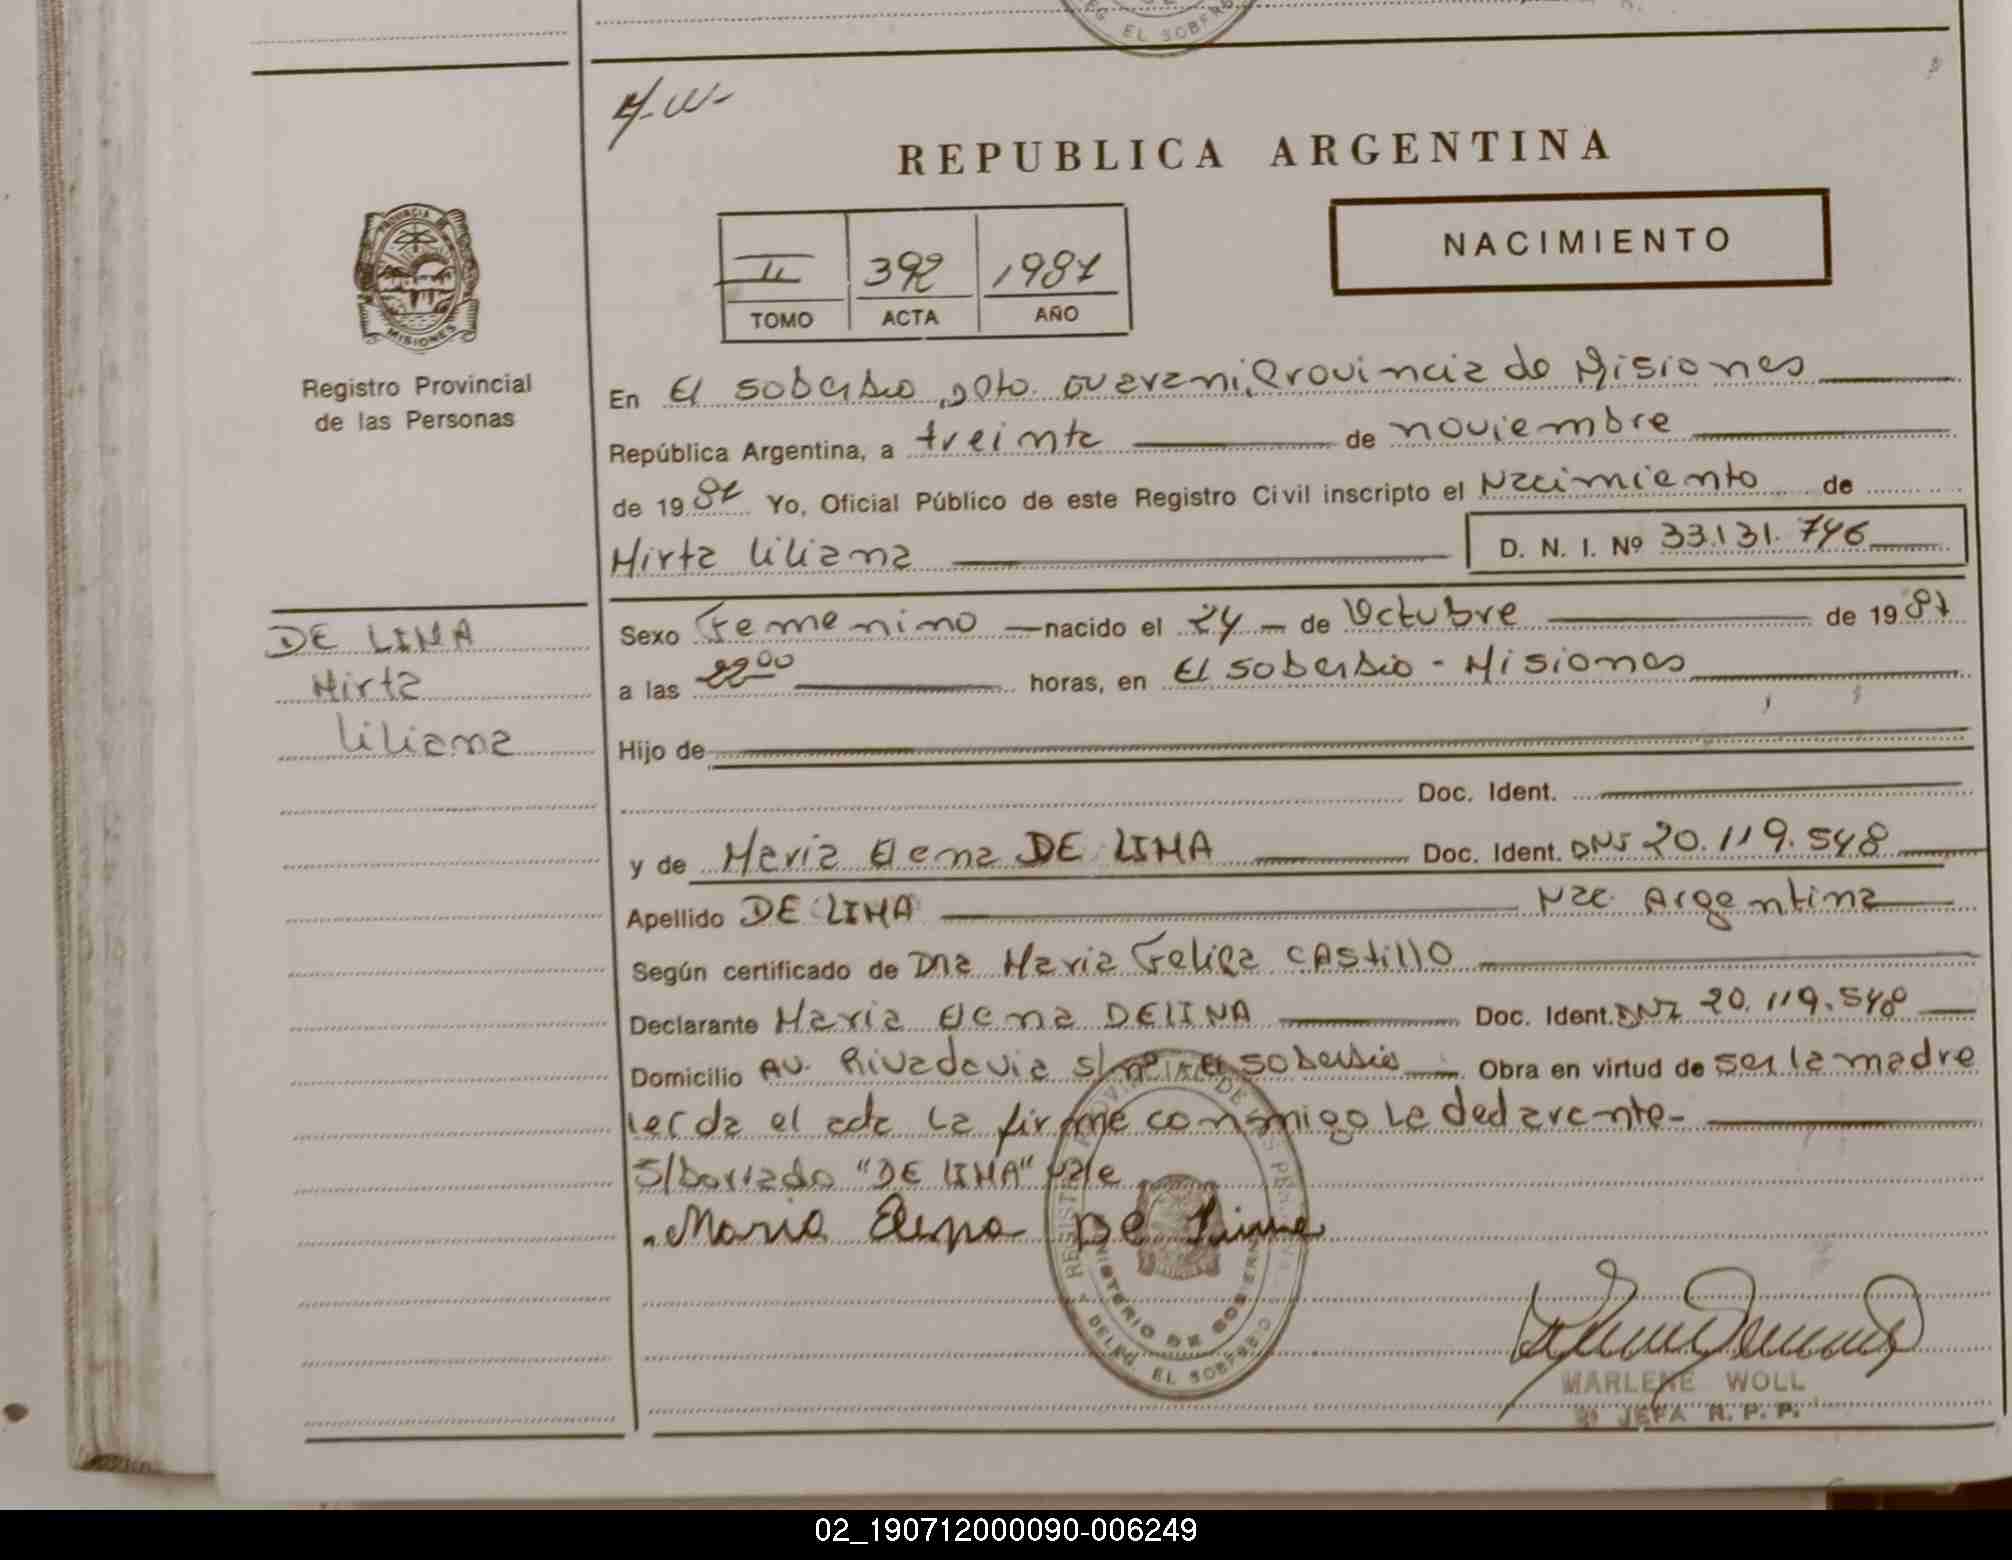 EL SOBERB
H.W-
REPUBLICA ARGENTINA
NACIMIENTO
II 392 1987
TOMO ACTA AÑO
PROVINCIA DE
MISIONES
Registro Provincial
de las Personas
En El Soberbio, Dpto. Guarani, Provincia de Misiones
República Argentina, a treinta de noviembre
de 1987 Yo, Oficial Público de este Registro Civil inscripto el Nacimiento de
Mirta Liliana D. N. I. Nº 33.131.746
DE LIMA
Mirta
Liliana
Sexo Femenino nacido el 24 de Octubre de 1987
a las 22 00 horas, en El Soberbio - Misiones
Hijo de
Doc. Ident.
y de Maria Elena DE LIMA Doc. Ident. DNI 20.119.548
Apellido DE LIMA Nac. Argentina
Según certificado de Dña Maria Felipa CAstillo
Declarante Maria Elena DE LIMA Doc. Ident. DNI 20.119.548
Domicilio AV. Rivadavia s/nº El Soberbio Obra en virtud de ser la madre
leida el acta La firma conmigo La declarante-
S/borrado "DE LIMA" Vale
Maria Elena De Lima
MINISTERIO DE GOBIERNO
DELEG. EL SOBERBIO
MARLENE WOLL
JEFA R. P. P.
02_190712000090-006249